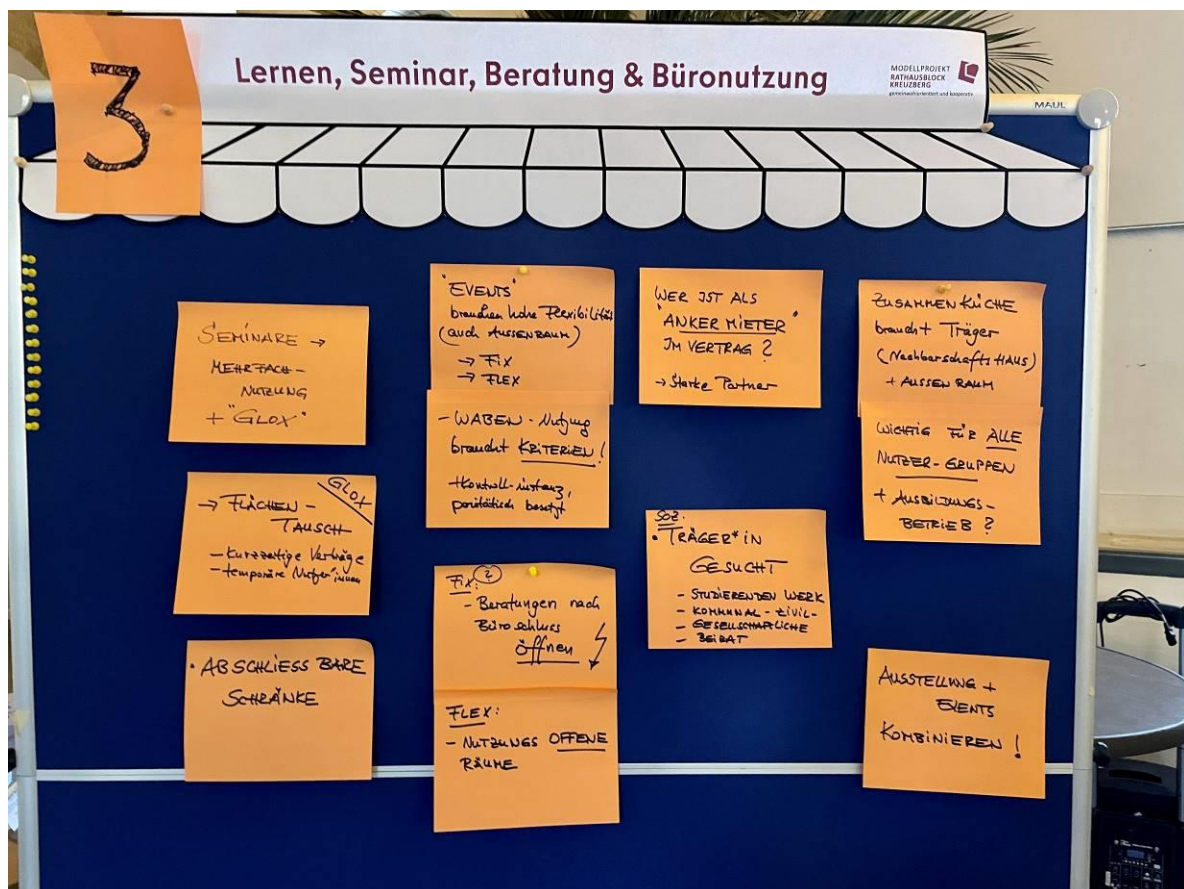 3
Lernen, Seminar, Beratung & Büronutzung
MODELLPROJEKT
RATHAUSBLOCK
KREUZBERG
gemeinwohlorientiert und kooperativ
MAUL
SEMINARE →
MEHRFACH-
NUTZUNG
+ "GLOX"
GLOX
→ FLÄCHEN-
TAUSCH
- Kurzzeitige Verträge
- temporäre Nutzer*innen
• ABSCHLIESSBARE
SCHRÄNKE
"EVENTS"
brauchen hohe Flexibilität
(auch AUSSENRAUM)
→ FIX
→ FLEX
- WABEN-Nutzung
braucht KRITERIEN!
+Kontroll-instanz,
paritätisch besetzt
FIX: 2
- Beratungen nach
Büroschluss
öffnen
FLEX:
- NUTZUNGS OFFENE
RÄUME
WER IST ALS
"ANKER MIETER"
IM VERTRAG?
→ Starke Partner
SOZ.
• TRÄGER*IN
GESUCHT
- STUDIERENDEN WERK
- KOMMUNAL-ZIVIL-
- GESELLSCHAFTLICHE
- BEIRAT
ZUSAMMEN KÜCHE
braucht Träger
(Nachbarschafts HAUS)
+ AUSSEN RAUM
WICHTIG FÜR ALLE
NUTZER-GRUPPEN
+ AUSBILDUNGS-
BETRIEB?
AUSSTELLUNG +
EVENTS
KOMBINIEREN!